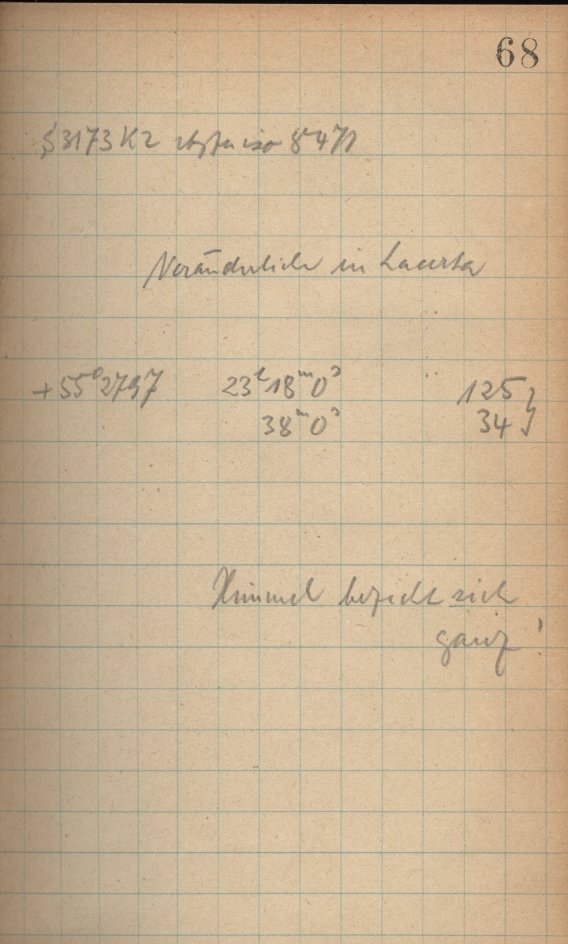 68
§ 3173 K2
Veränderliche in Lacerta
+55° 2797 23h 18m 0s 125 }
38m 0s 34 }
Himmel bezieht sich
ganz!